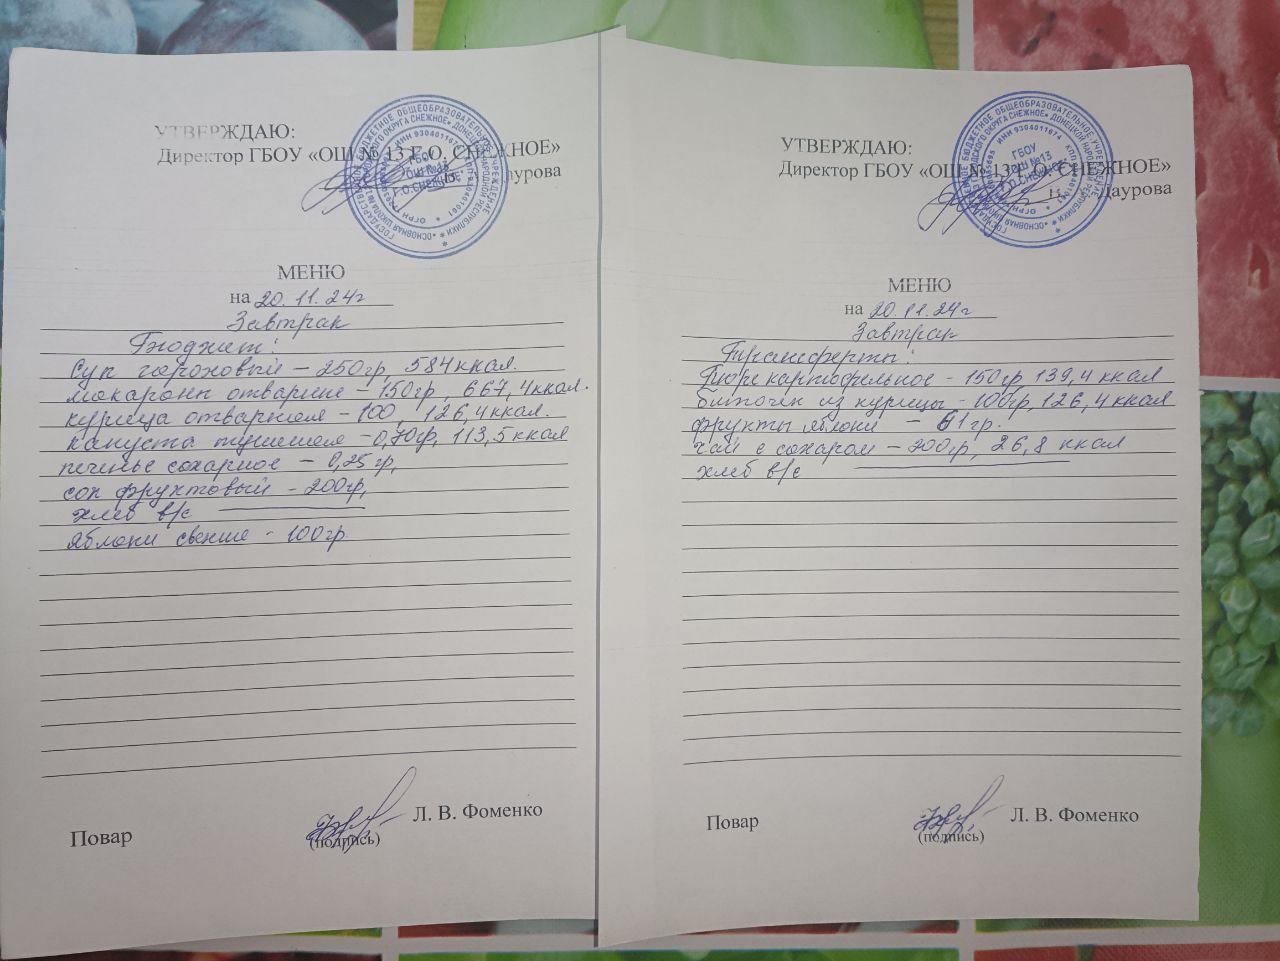 УТВЕРЖДАЮ:
Директор ГБОУ «ОШ № 13 Г.О. СНЕЖНОЕ»
МЕНЮ
на 20.11.24г
Завтрак
Бюджет:
Суп гороховый – 250гр, 584ккал.
макароны отварные – 150гр, 667,4ккал.
курица отварная – 100, 126,4ккал.
капуста тушеная – 0,70гр, 113,5ккал
печенье сахарное – 0,25гр,
сок фруктовый - 200гр,
хлеб в/с
яблоки свежие - 100гр
Повар
(подпись)
Л. В. Фоменко
УТВЕРЖДАЮ:
Директор ГБОУ «ОШ № 13 Г.О. СНЕЖНОЕ»
В. Даурова
МЕНЮ
на 20.11.24г
Завтрак
Трансферты:
Пюре картофельное - 150гр, 139,4 ккал
биточек из курицы - 100гр, 126,4 ккал
фрукты яблоки – 61гр.
чай с сахаром – 200гр, 26,8 ккал
хлеб в/с
Повар
(подпись)
Л. В. Фоменко
ГБОУ
ОШ №13
Г.О. СНЕЖНОЕ